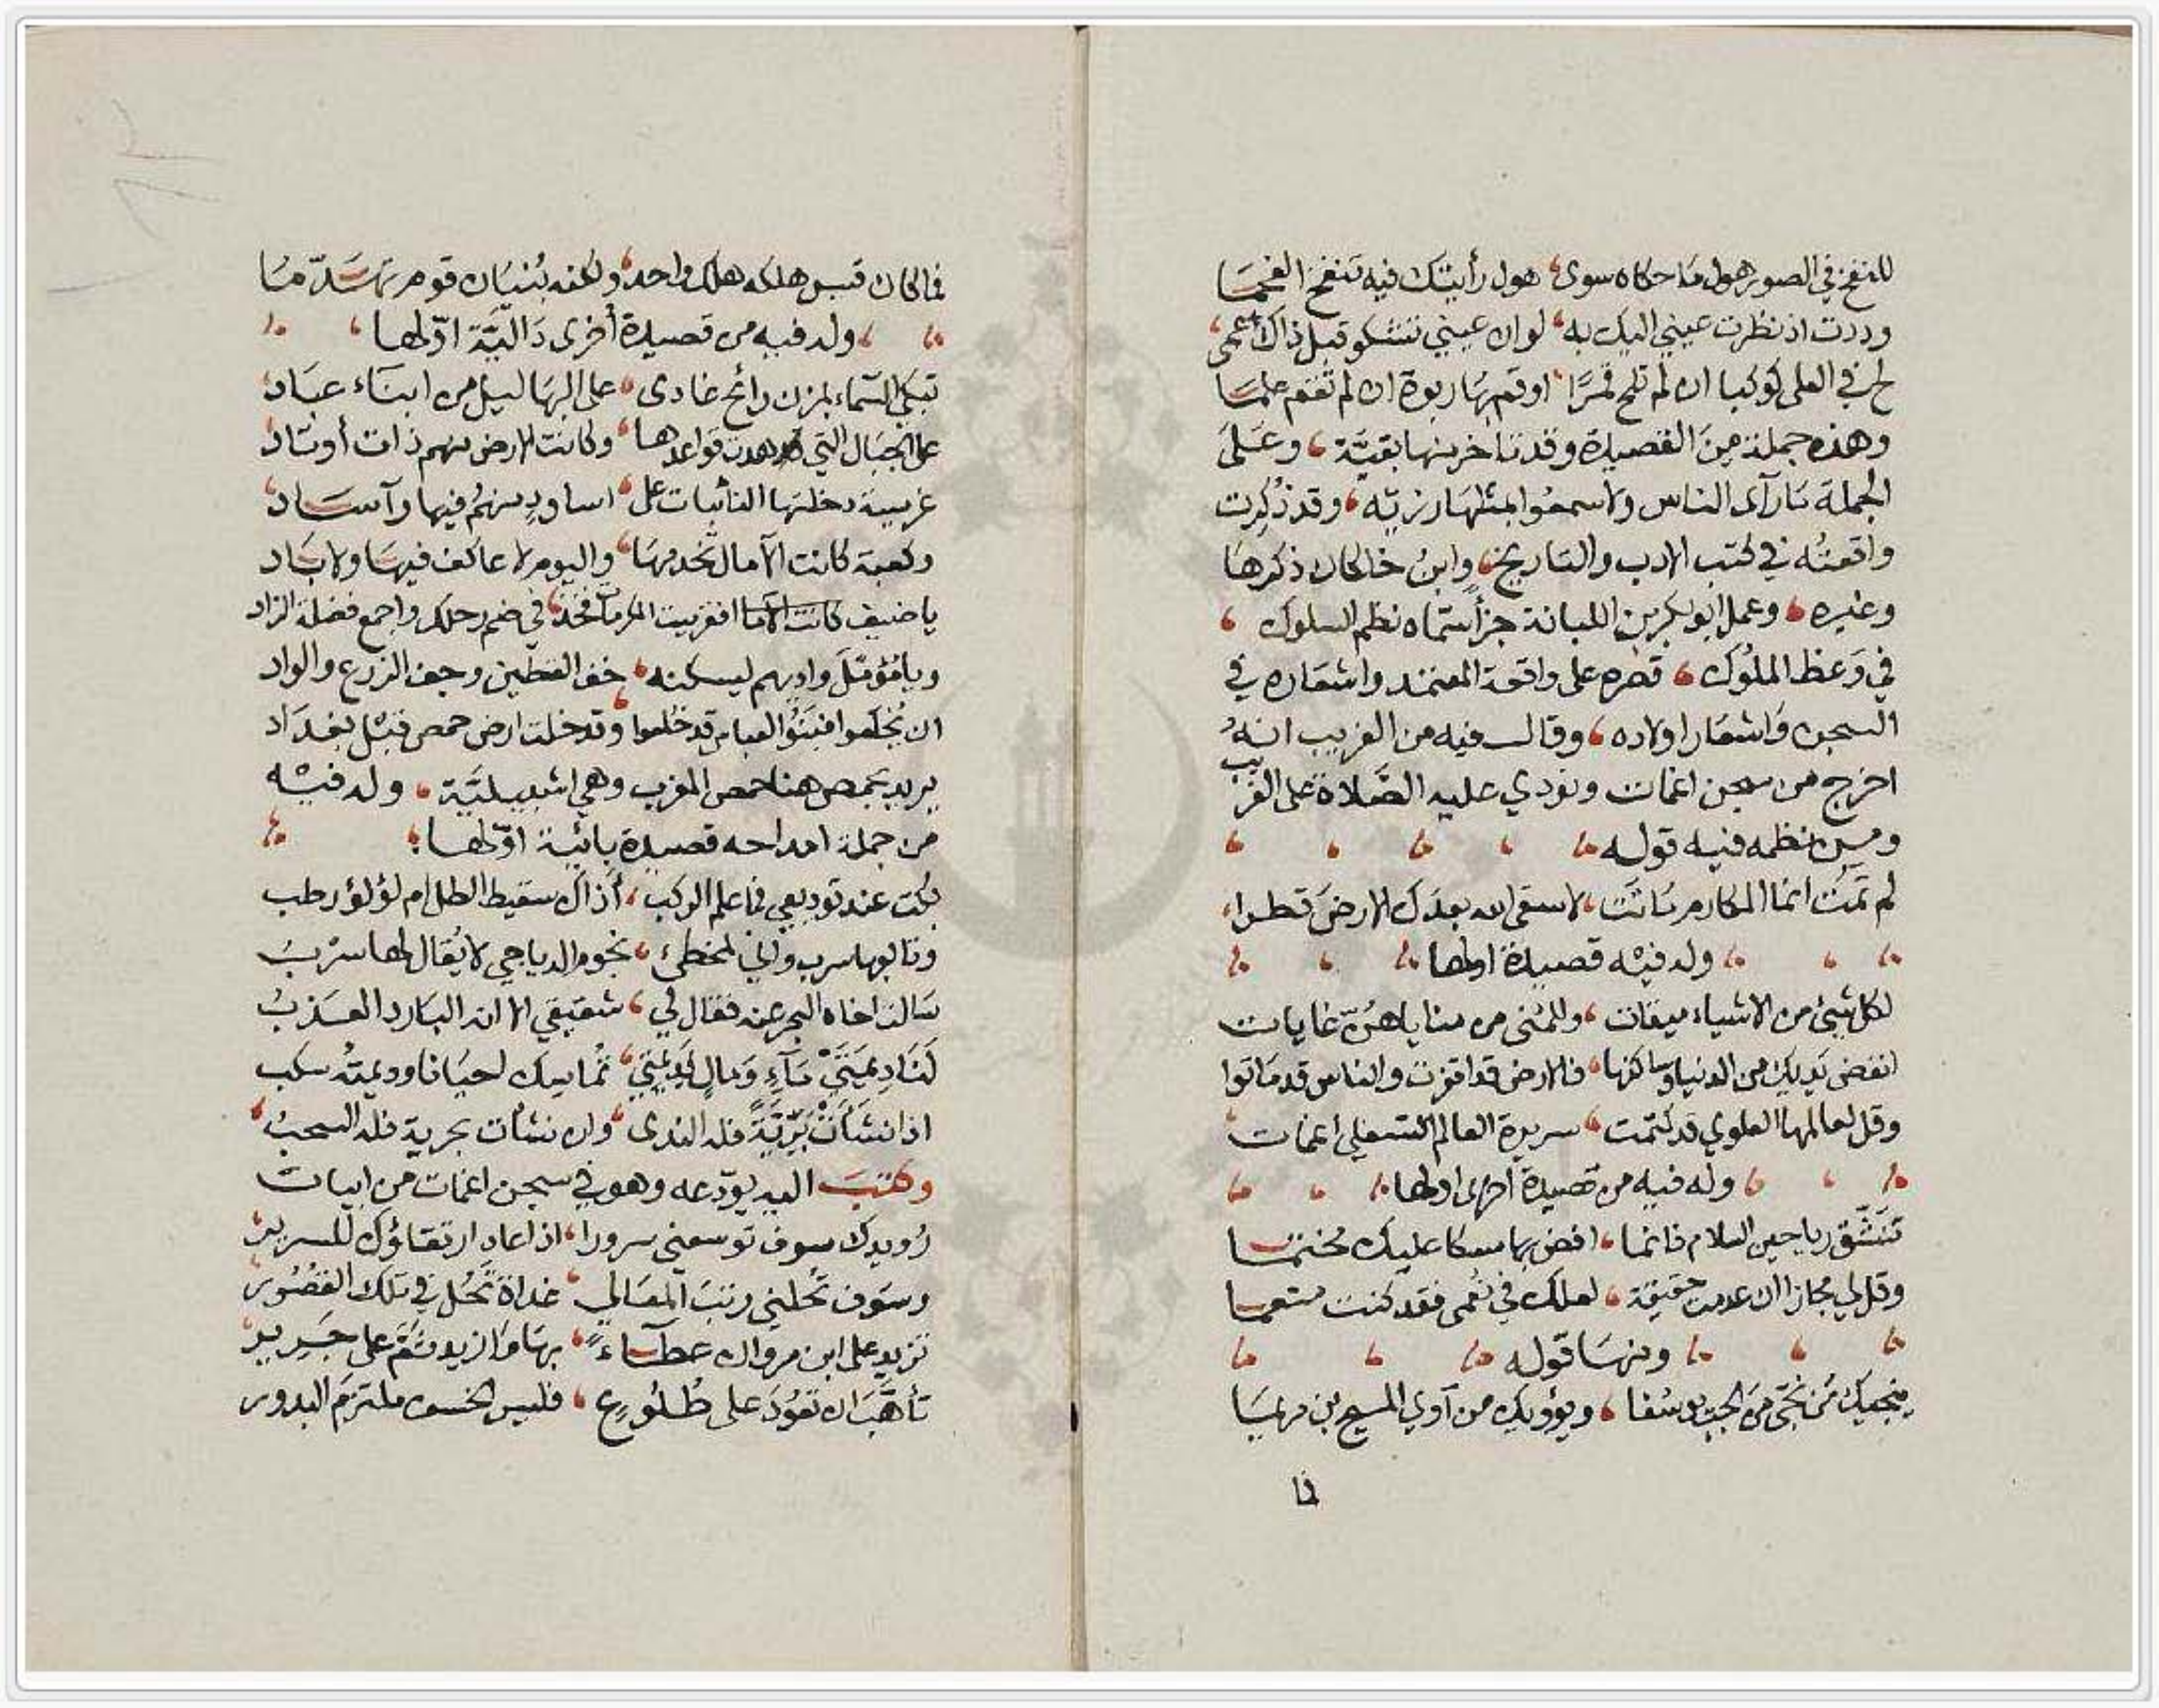 للنفخ في الصور هول ما حكاه سوى، هول رأيتك فيه تنفخ الفحما
وددت اذ نظرت عيني اليك به، لو ان عيني تشكو قبل ذاك عمى
لح في العلى كوكبا ان لم تلح قمرا، او قم بها ربوة ان لم تقم علما
وهذه جملة من القصيدة وقد تأخر منها بقية، وعلى
الجملة ما رآى الناس ولا سمعوا بمثلها رزية، وقد ذكرت
واقعته في كتب الادب والتاريخ، وابن خالكان ذكرها
وغيره، وعمل ابو بكر بن اللبانة جزأ سماه نظم السلوك،
في وعظ الملوك، قصره على واقعة المعتمد واشعاره في
السجن واشعار اولاده، وقال فيه من الغريب انه
اخرج من سجن اغمات ونودي عليه الصلاة على الغريب
ومن نظمه فيه قوله
لم تمت انما المكارم ماتت، لا سقى الله بعدك الارض قطرا،
وله فيه قصيدة اولها
لكل شيئ من الاشياء ميقات، وللمنى من منايا هن غايات
انفض يديك من الدنيا وساكنها، فالارض قد اقفرت والناس قد ماتوا
وقل لعالمها العلوي قد كتمت، سريرة العالم السفلي اغمات
وله فيه من قصيدة اخرى اولها
تنشق رياحين السلام فانما، افض بها مسكا عليك مختما
وقل لي مجازا ان عدمت حقيقة، لعلك في نعمى فقد كنت منعما
ومنها قوله
ينجيك من نجى من الجب يوسفا، ويؤويك من آوي المسيح بن مريما
فما
فما كان قيس هلكه هلك واحد، ولكنه بنيان قوم تهدما
وله فيه من قصيدة أخرى دالية اولها
تبكي السماء بمزن رائح غادى، على البها ليل من ابناء عباد
على الجبال التي هدت قواعدها، وكانت الارض منهم ذات أوتاد
عريسة دخلتها النائبات على، اساود منهم فيها وآساد
وكعبة كانت الآمال تخدمها، واليوم لا عاكف فيها ولا باد
يا ضيف كانت الآما اقفر بيت المكرمات فخذ، في ضم رحلك واجمع فضلة الزاد
ويا مؤمل واديهم ليسكنه، خف القطين وجف الزرع والواد
ان يخلعوا فبنو العباس قد خلعوا، وقد خلت ارض حمص قبل بغداد
يريد بحمص هنا حمص المغرب وهي اشبيلية، وله فيه
من جملة امداحه قصيدة بائية اولها،
بكت عند توديعي فما علم الركب، أذاك سقيط الطل ام لؤلؤ رطب
وتا بها سرب واني لمخطئ، نجوم الدياجي لا يقال لها سرب
سالت اخاه البحر عنه فقال لي، شقيقي الا انه البارد العذب
لنا ديمتي ماء ومال فديمتي، تماسك احيانا وديمته سكب
اذا نشأت برية فله الندى، وان نشأت بحرية فله السحب،
وكتب اليه يودعه وهو في سجن اغمات من ابيات
رويدك سوف توسعني سرورا، اذا عاد ارتقاؤك للسرير،
وسوف تحلني رتب المعالي، غداة تحل في تلك القصور،
تزيد على ابن مروان عطاء، بها وازيد ثم على جرير،
تأهب ان تعود على طلوع، فليس الخسوف ملتزم البدور